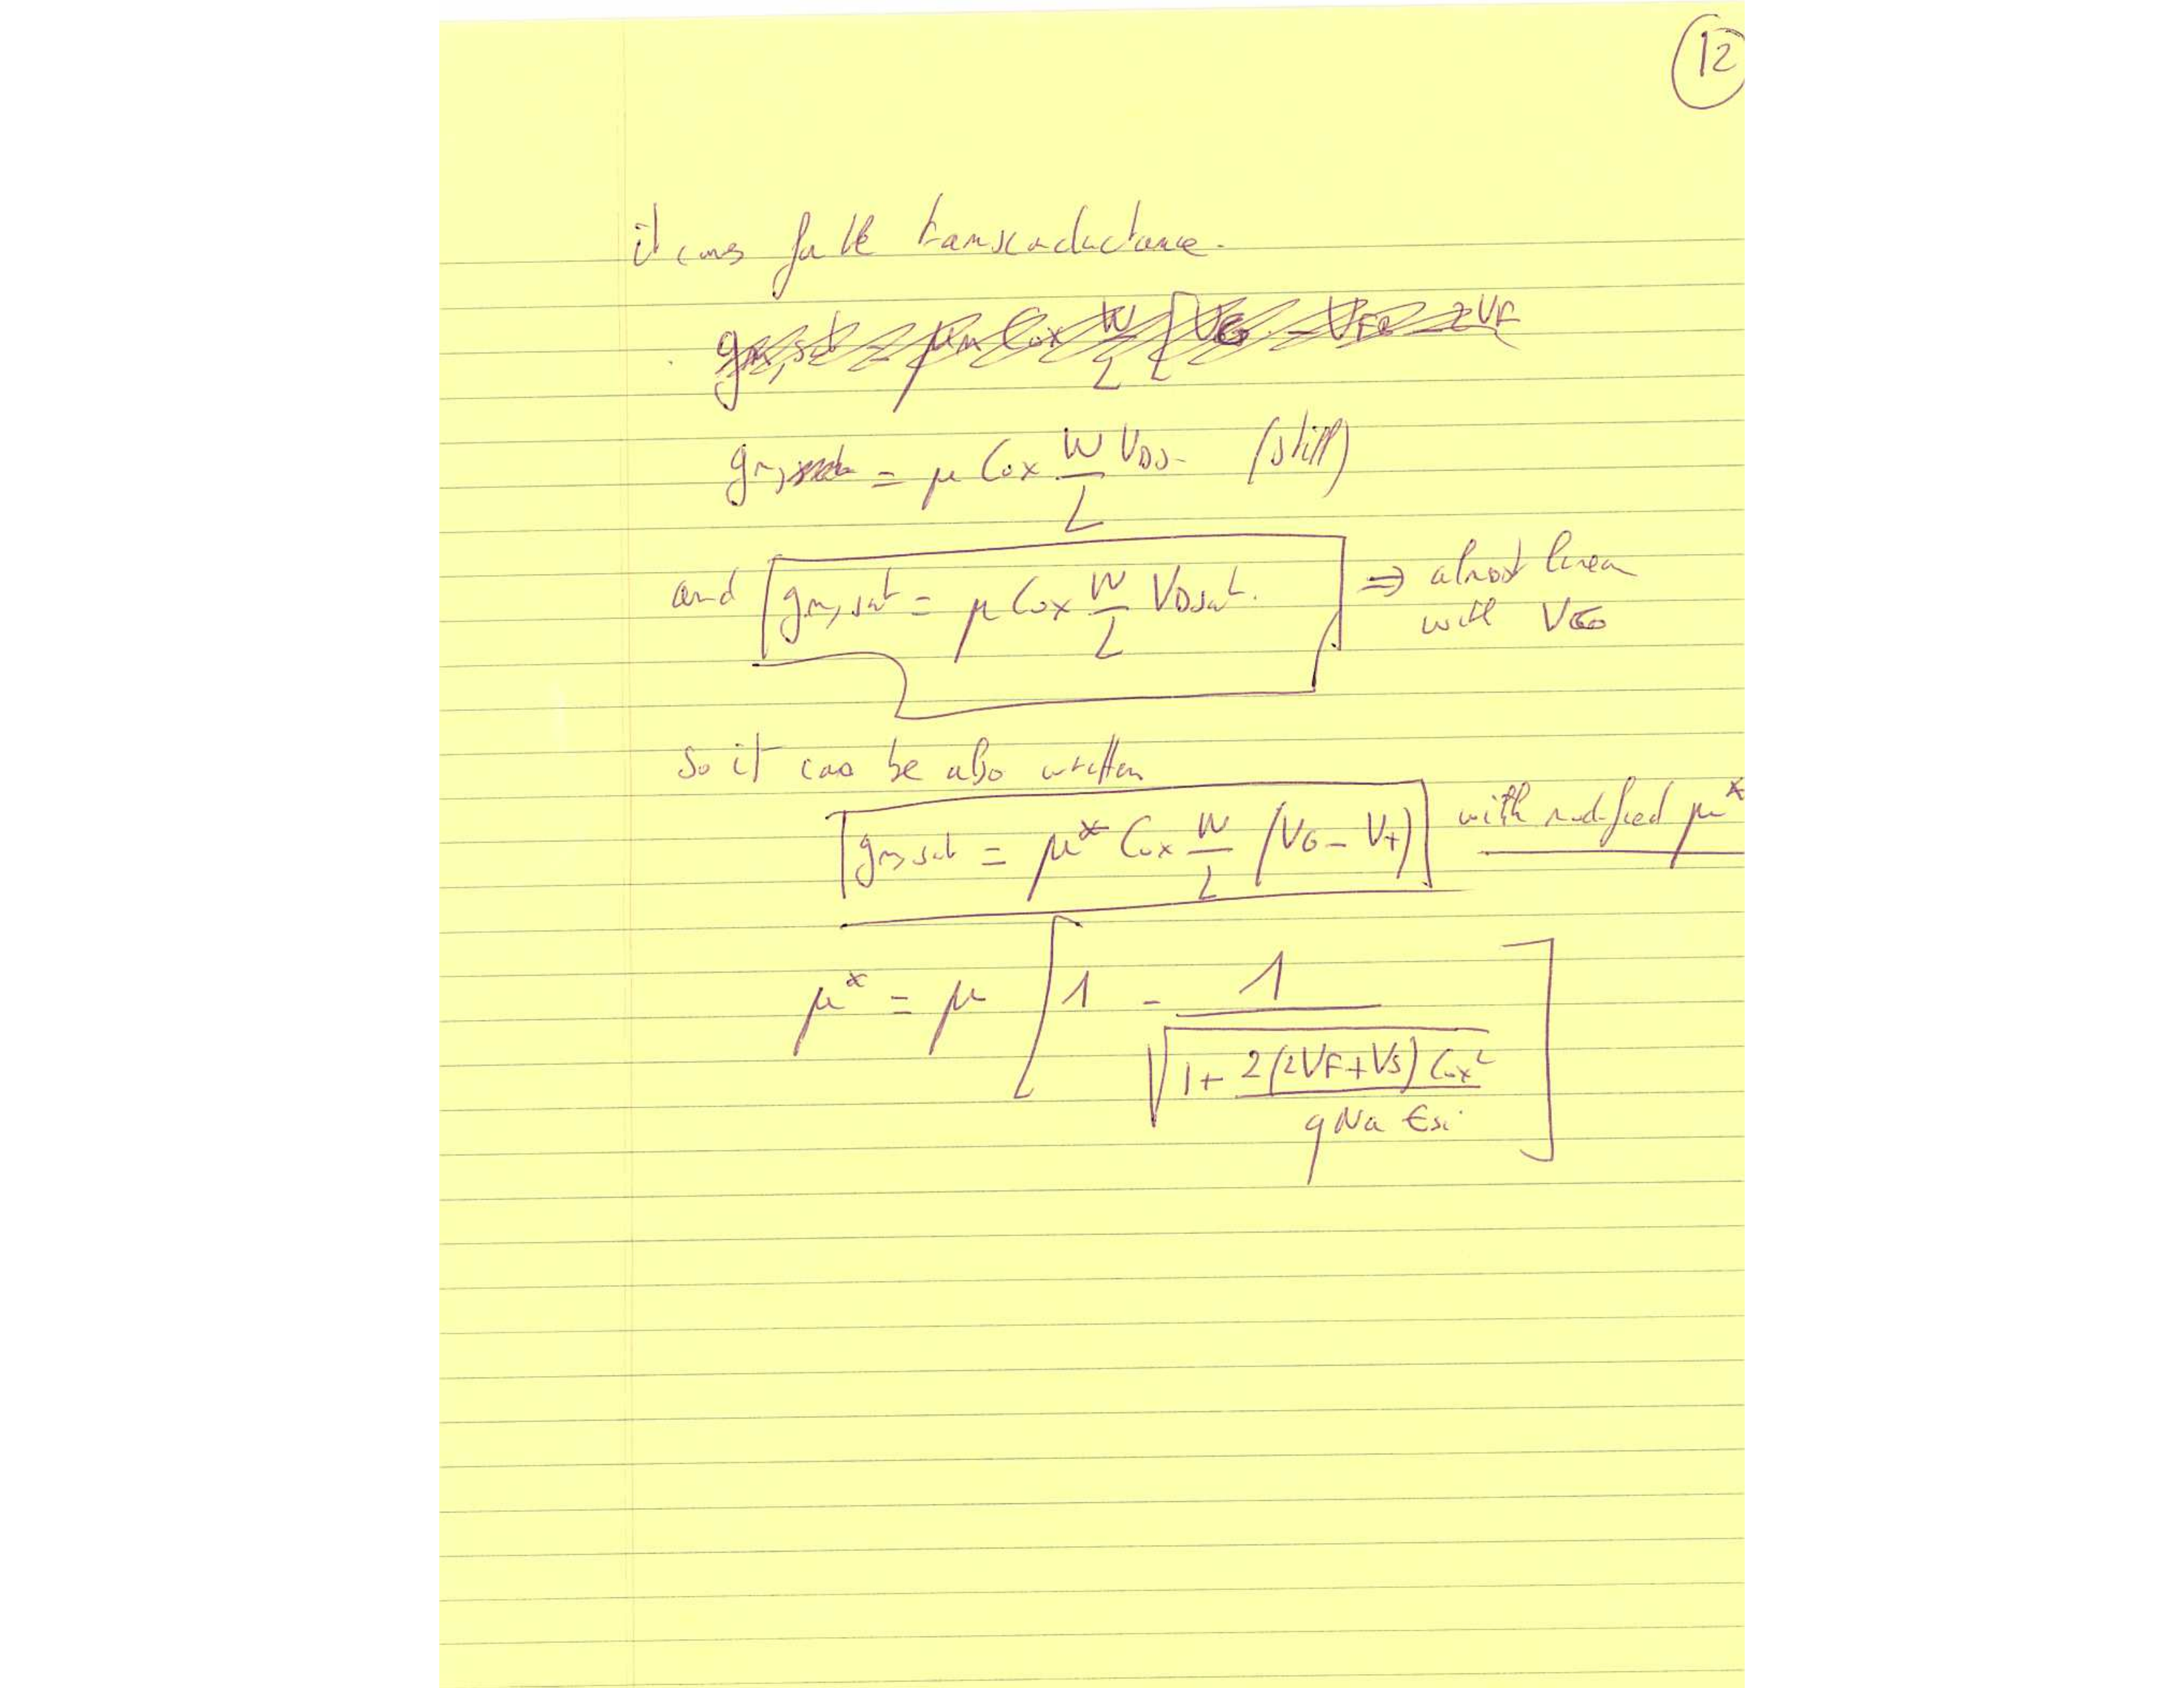 12
it comes for the transconductance.
gm,sat = μn Cox W/L [VG - VFB - 2VF
gm = μ Cox W/L VDS (still)
and gm,sat = μ Cox W/L VDsat. ⇒ almost linear
with VG
so it can be also written
gm,sat = μ* Cox W/L (VG - VT) with modified μ*
μ* = μ [1 - 1/√(1 + 2(2VF+VS) Cox²/(qNa εsi))]